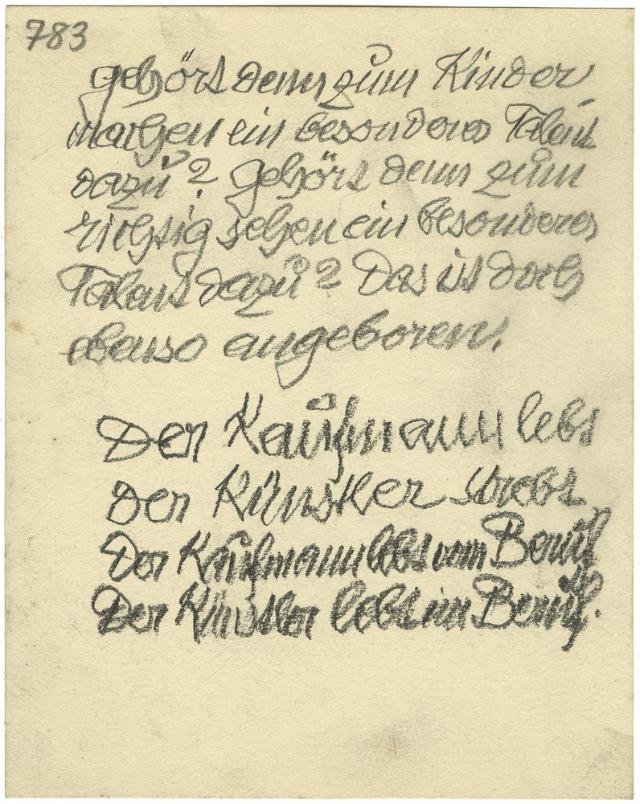 783
gehört denn zum Kinder
machen ein besonderes Talent
dazu? gehört denn zum
richtig sehen ein besonderes
Talent dazu? Das ist doch
ebenso angeboren.
Der Kaufmann lebt
Der Künstler strebt
Der Kaufmann lebt vom Beruf
Der Künstler lebt im Beruf.